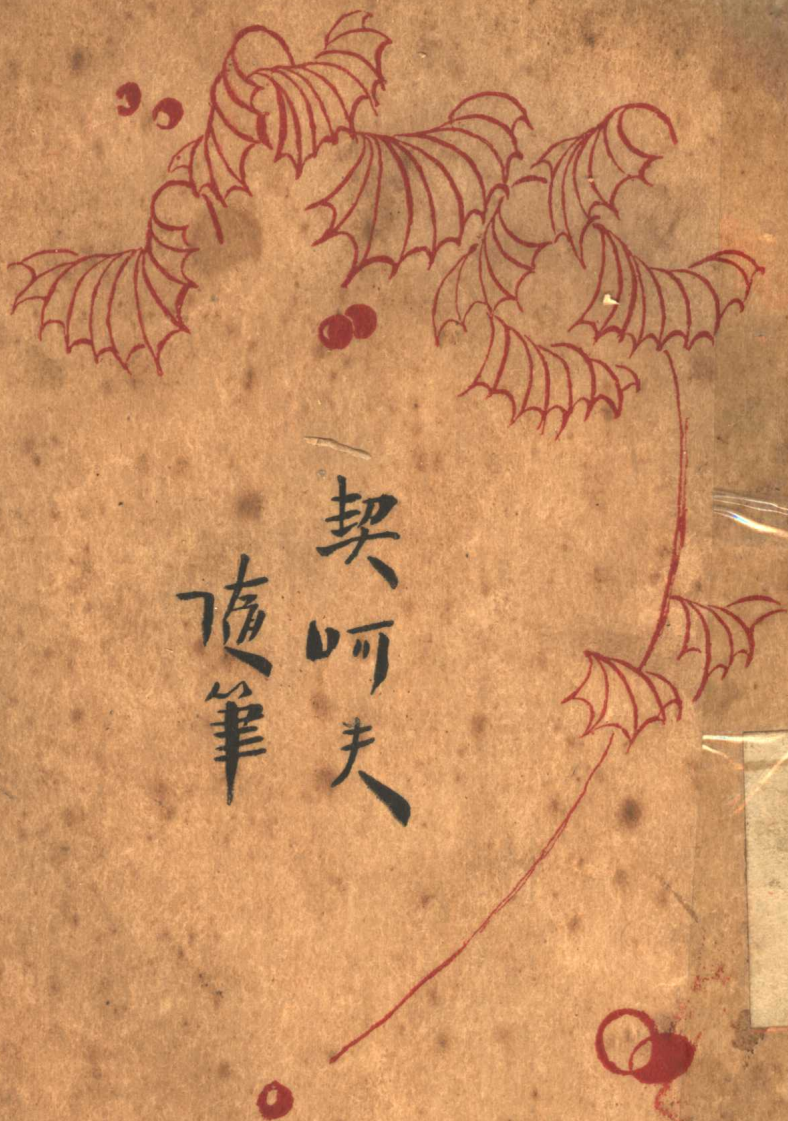 契呵夫
隨筆